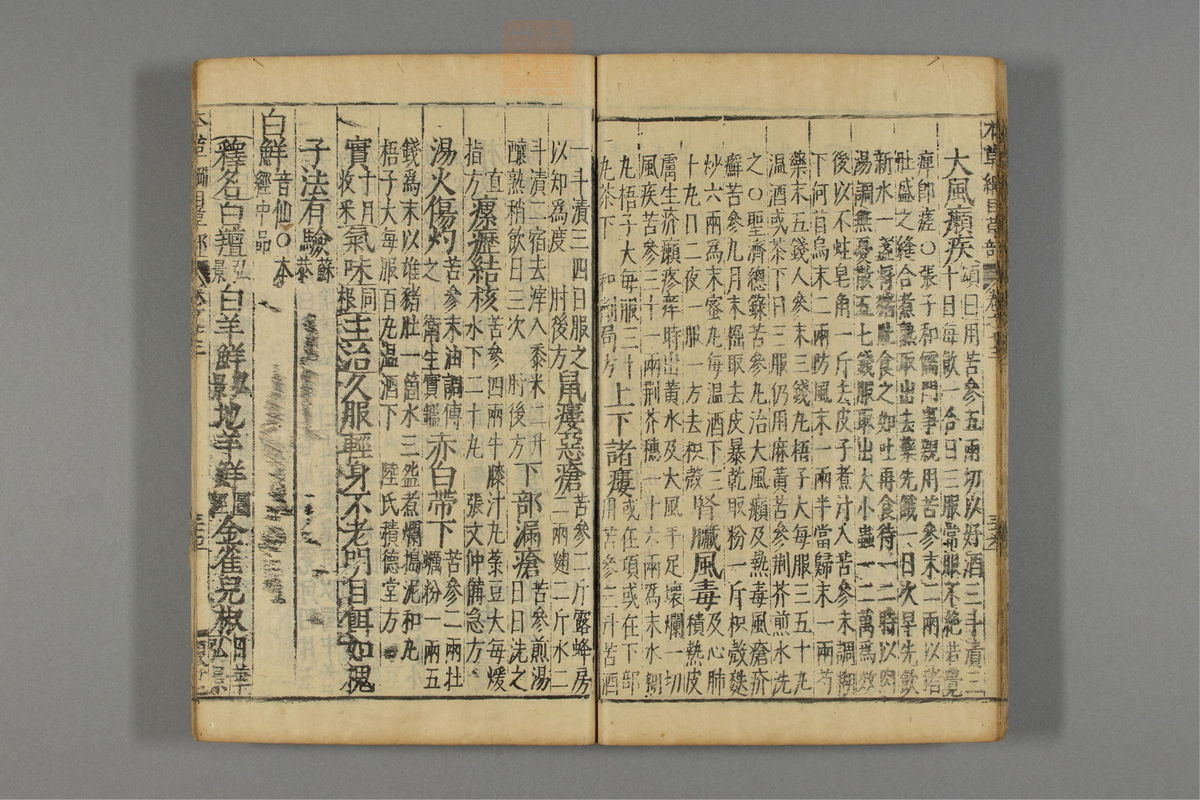 大風癩疾頌曰用苦參五兩切以好酒三斗漬三
十日每飲一合日三服常服不絕若覺
痺即瘥○張子和儒門事親用苦參末二兩以猪
肚盛之縫合煮熟取出去藥先餓一日次早先飲
新水一盞將猪肚食之如吐再食待一二時以肉
湯調無憂散五七錢服取出大小蟲一二萬為效
後以不蛀皂角一斤去皮子煮汁入苦參末調糊
下何首烏末二兩防風末一兩半當歸末一兩芍
藥末五錢人參末三錢丸梧子大每服三五十丸
溫酒或茶下日三服仍用麻黃苦參荆芥煎水洗
之○聖濟總錄苦參丸治大風癩及熱毒風瘡疥
癬苦參九月末掘取去皮暴乾取粉一斤枳殼麩
炒六兩為末蜜丸每溫酒下三十丸日二夜一服一方去枳殼
腎臟風毒及心肺積熱皮
膚生疥癩疹痒時出黃水及大風手足壞爛一切
風疾苦參三十一兩荆芥穗一十六兩為末水糊
丸梧子大每服三十丸茶下 和劑局方
上下諸瘻或在項或在下部用苦參五升苦酒
一斗漬三四日服之以知為度 肘後方
鼠瘻惡瘡苦參二斤露蜂房二兩麴二斤水二
斗漬二宿去滓入黍米二升釀熟稍飲日三次 肘後方
下部漏瘡苦參煎湯日日洗之 直指方
瘰癧結核苦參四兩牛膝汁丸菉豆大每煖水下二十丸 張文仲備急方
湯火傷灼苦參末油調傅之 衛生寶鑑
赤白帶下苦參二兩牡蠣粉一兩五
錢為末以雄豬肚一箇水三盌煮爛搗泥和丸
梧子大每服百丸溫酒下 陸氏積德堂方
實十月收采氣味同根主治久服輕身不老明目餌如槐
子法有驗蘇恭
白鮮音仙○本經中品
釋名白羶弘景白羊鮮弘景地羊鮮圖經金雀兒椒日華